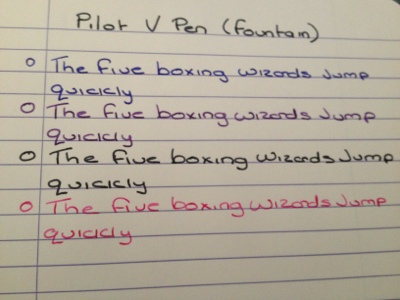 Pilot V Pen (fountain)
The five boxing wizards jump
quickly
The five boxing wizards jump
quickly
The five boxing wizards jump
quickly
The five boxing wizards jump
quickly